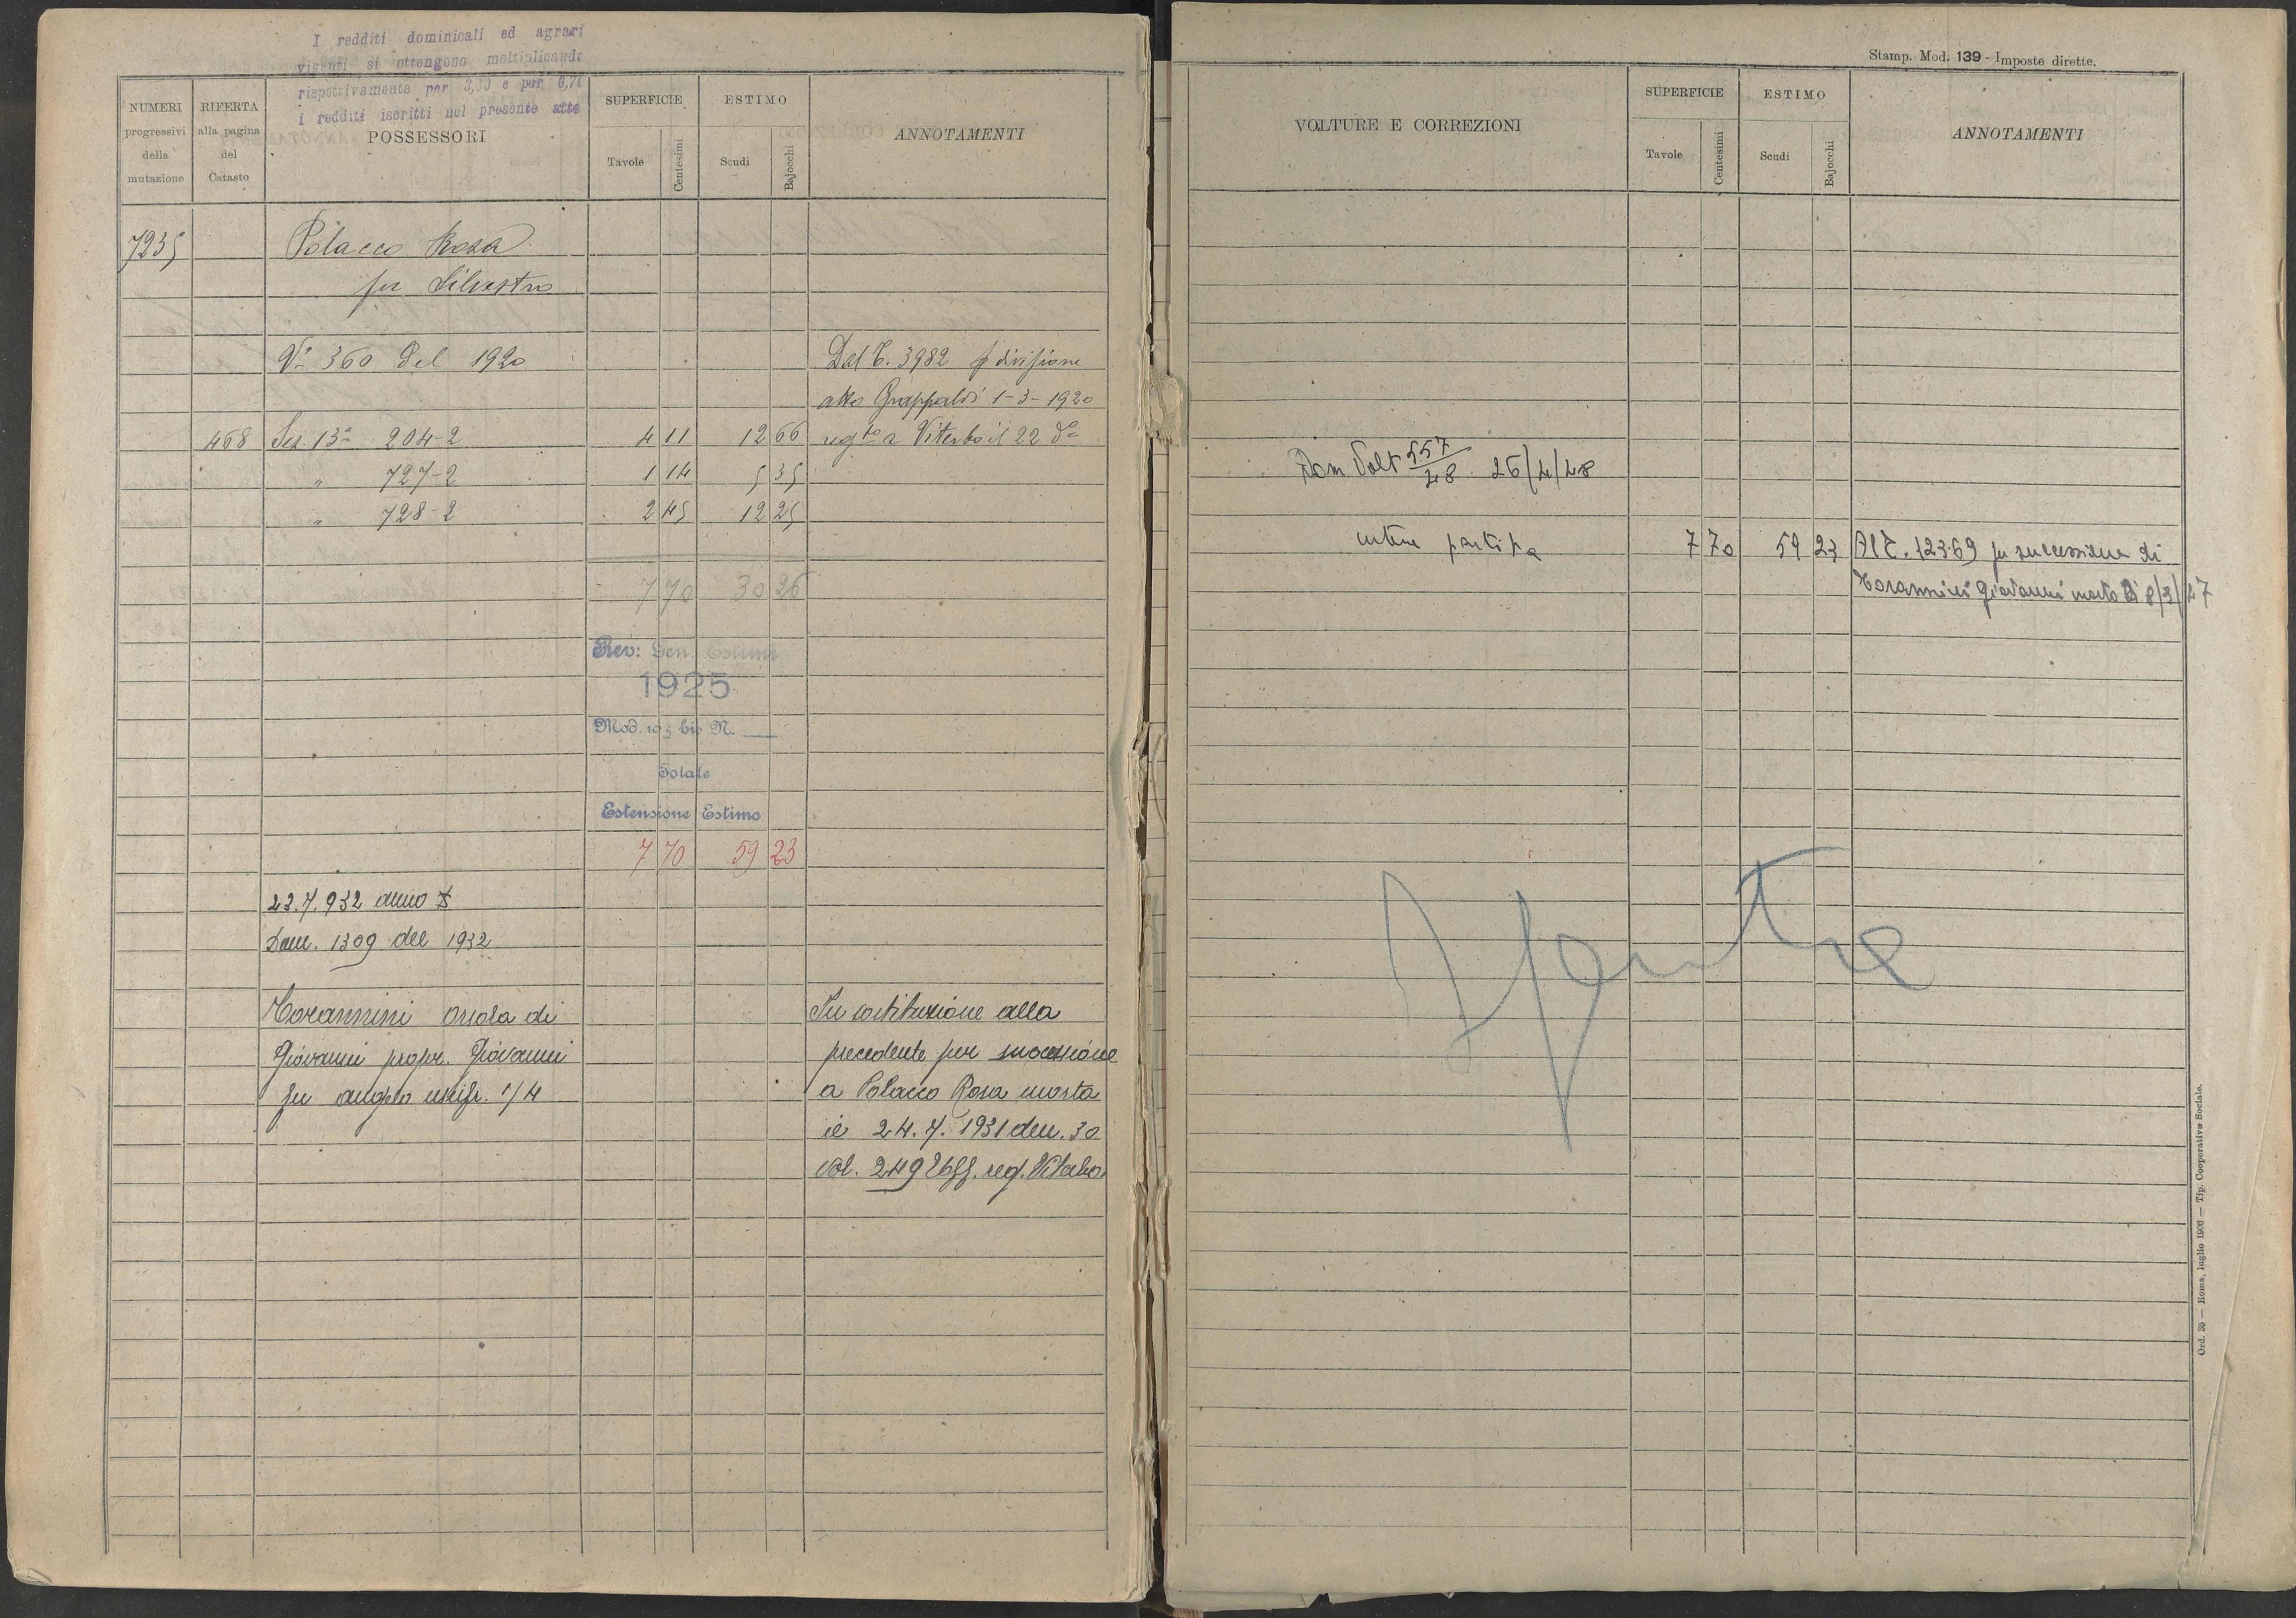 I redditi dominicali ed agrari
vigenti si ottengono moltiplicando
rispettivamente per 3,30 e per 0,70
i redditi iscritti nel presente atto
NUMERI progressivi della mutazione
RIFERTA alla pagina del Catasto
POSSESSORI
SUPERFICIE
Tavole
Centesimi
ESTIMO
Scudi
Bajocchi
ANNOTAMENTI
7235
Polacco Rosa
fu Silvestro
Va 360 del 1920
Dal T. 3982 p divisione
atto Grappaldi 1-3-1920
468 Sez. 13a 204-2 4 11 12 66 regto a Viterbo il 22 do
" 727-2 1 14 5 35
" 728-2 2 45 12 25
7 70 30 26
Rev: Gen. Estimi
1925
Mod. 103 bis N.
Totale
Estensione Estimo
7 70 59 23
22.7.932 anno X
Dom. 1309 del 1932
Torannini Orsola di
Giovanni propr. Giovanni
fu Angelo usufr. 1/4
In sostituzione alla
precedente per successione
a Polacco Rosa morta
il 24.7.1931 den. 30
vol. 249 Uff. reg. Viterbo.
Stamp. Mod. 139 - Imposte dirette.
VOLTURE E CORREZIONI
SUPERFICIE
Tavole
Centesimi
ESTIMO
Scudi
Bajocchi
ANNOTAMENTI
Dom Volt 557/48 26/4/48
intera partita 7 70 59 23 Al T. 12369 per successione di
Torannini Giovanni morto il 8/3/47
Ord. 35 — Roma, luglio 1906 — Tip. Cooperativa Sociale.